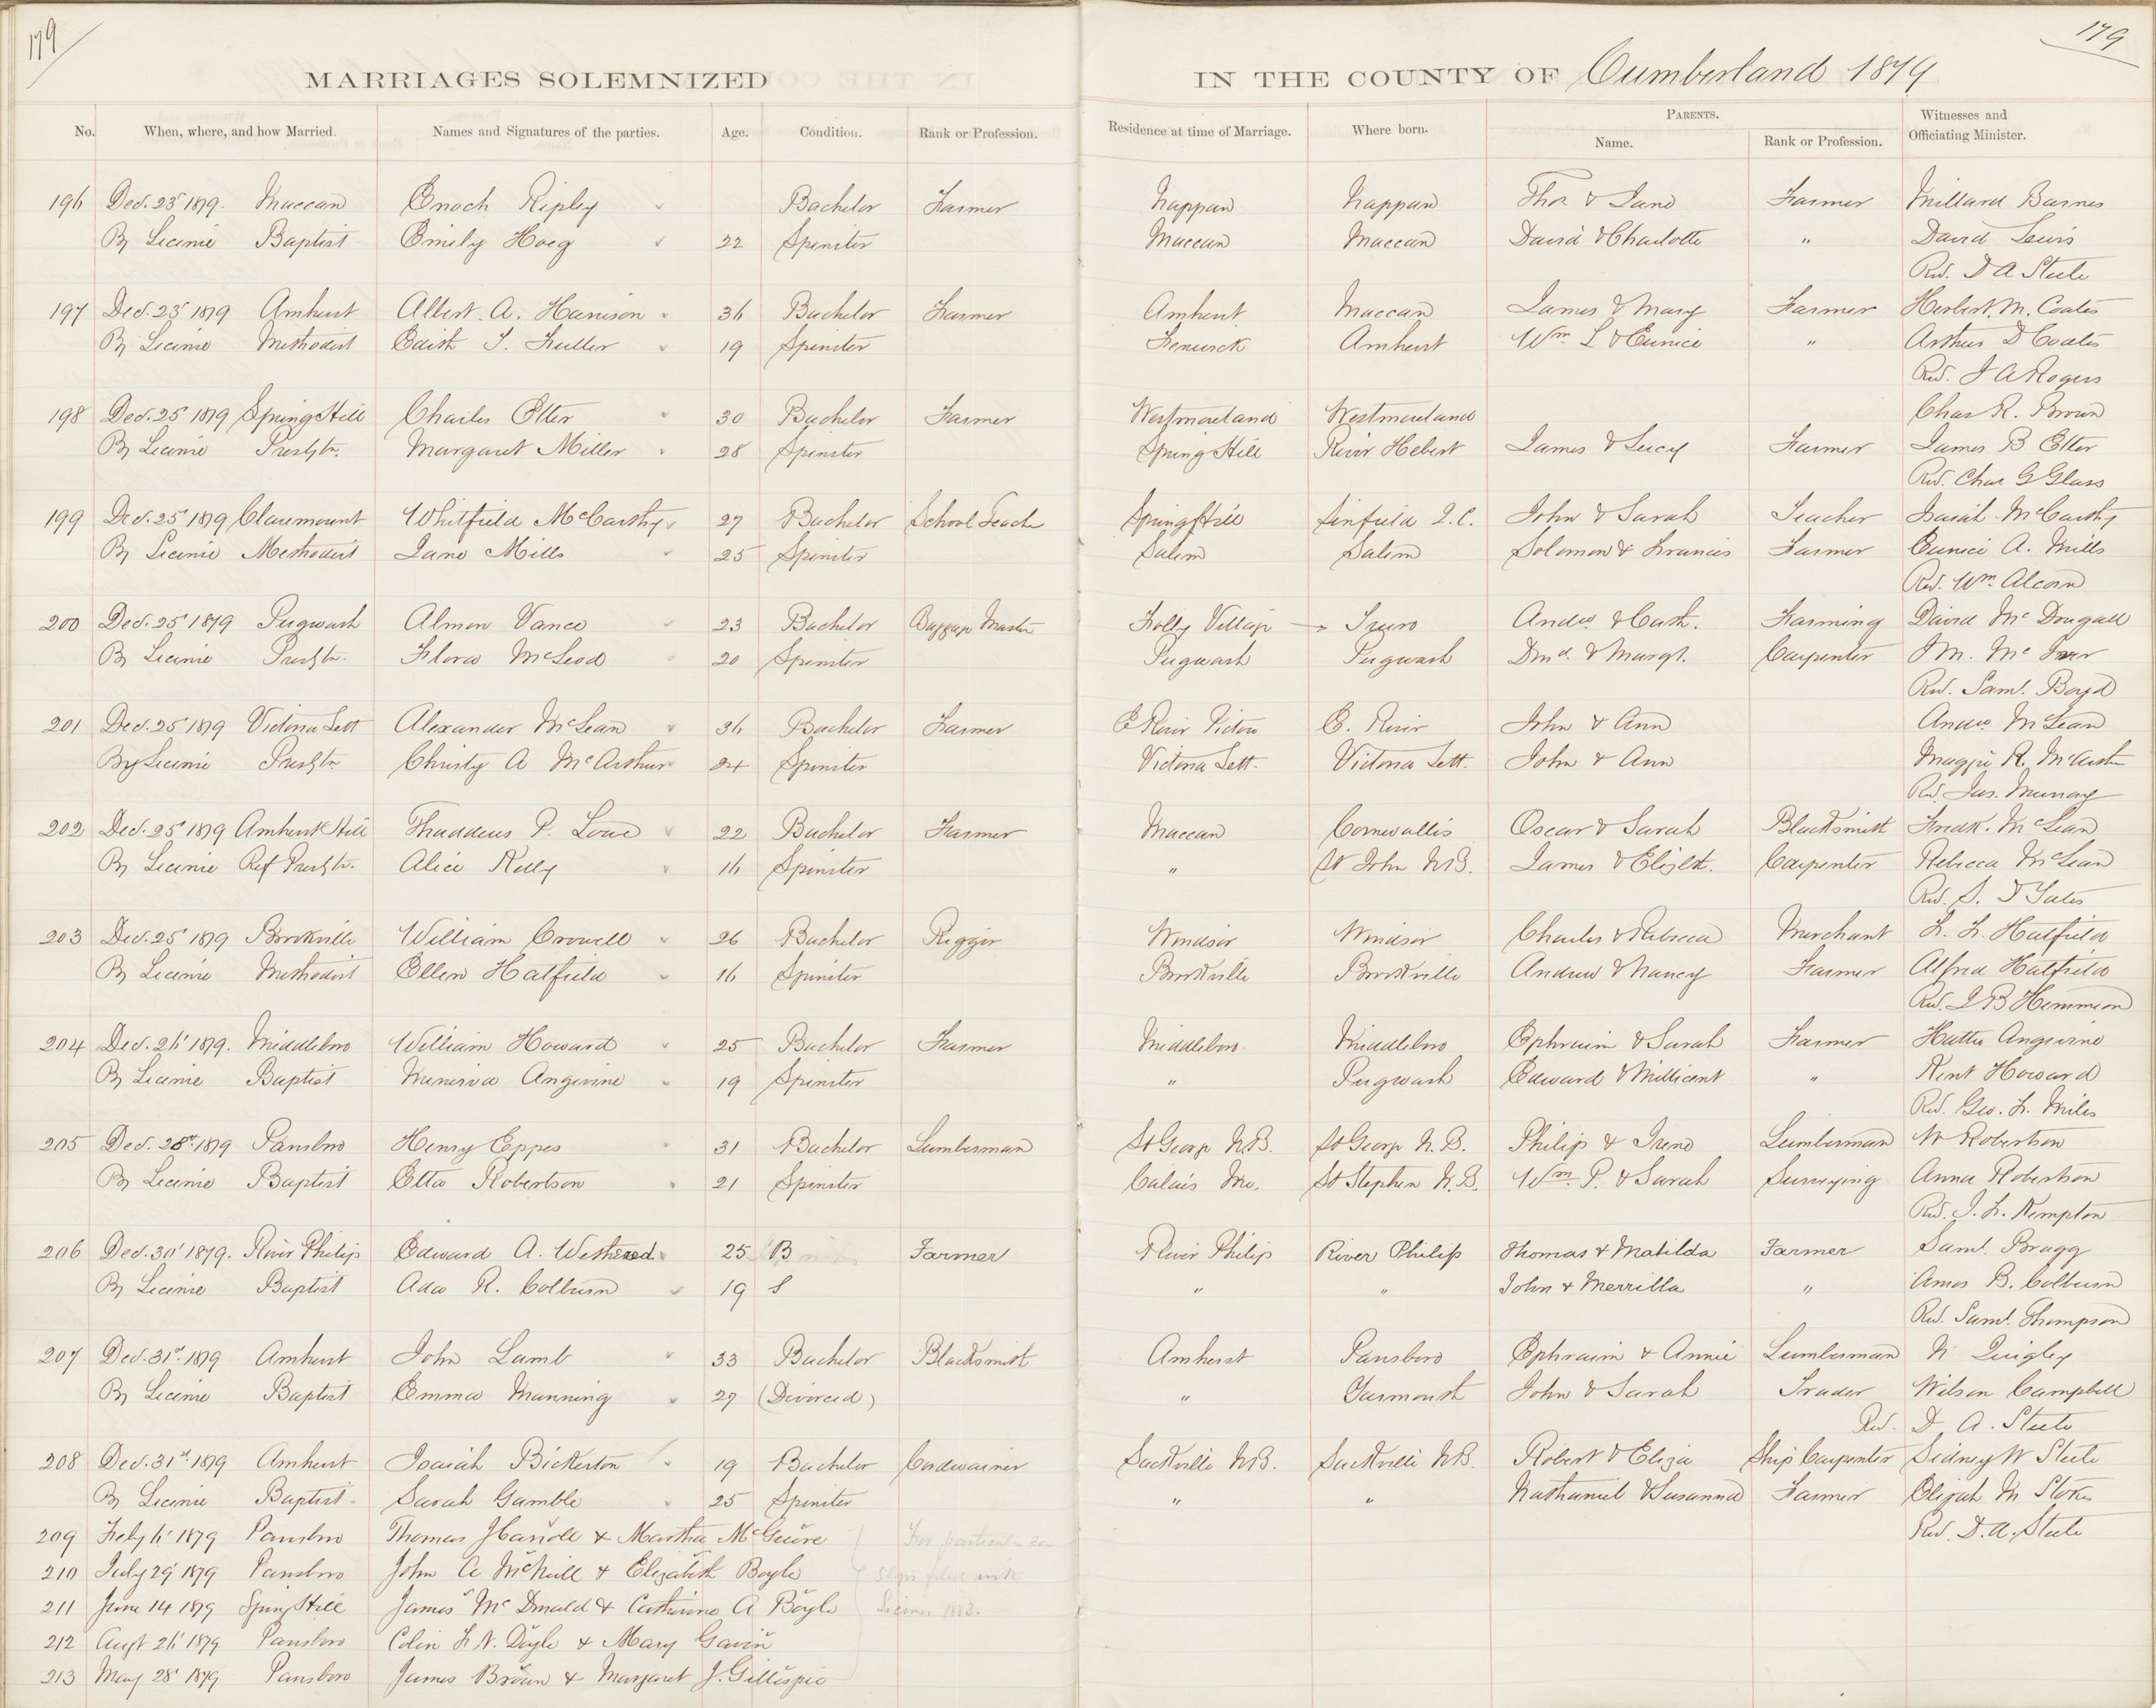 179
179
MARRIAGES SOLEMNIZED IN THE COUNTY OF Cumberland 1879
No. When, where, and how Married. Names and Signatures of the parties. Age. Condition. Rank or Profession. Residence at time of Marriage. Where born. PARENTS. Name. Rank or Profession. Witnesses and Officiating Minister.
196 Dec. 23 1879. Maccan Enoch Ripley Bachelor Farmer Nappan Nappan Thos & Jane Farmer Millard Barnes
By License Baptist Emily Hoeg 22 Spinster Maccan Maccan David & Charlotte " David Lewis
Rev. D A Steele
197 Dec. 23 1879 Amherst Albert A. Harrison 36 Bachelor Farmer Amherst Maccan James & Mary Farmer Herbert M. Coates
By License Methodist Edith J. Fuller 19 Spinster Fenwick Amherst Wm L & Eunice " Arthur D Coates
Rev. J A Rogers
198 Dec. 25 1879 Spring Hill Charles Etter 30 Bachelor Farmer Westmorland Westmorland Chas R. Brown
By License Presbtn. Margaret Miller 28 Spinster Spring Hill River Hebert James & Lucy Farmer James B Etter
Rev. Chas G Glass
199 Dec. 25 1879 Claremount Whitfield McCarthy 27 Bachelor School Teach Spring Hill Linfield Q.C. John & Sarah Teacher Isaiah McCarthy
By License Methodist Jane Mills 25 Spinster Salem Salem Solomon & Francis Farmer Eunice A. Mills
Rev. Wm. Alcorn
200 Dec. 25 1879 Pugwash Almon Vance 23 Bachelor Baggage Master Folly Village Truro Andw & Cath. Farming David McDougall
By License Presbtn. Flora McLeod 20 Spinster Pugwash Pugwash Dnd. & Margt. Carpenter J M. Mc
Rev. Saml. Boyd
201 Dec. 25 1879 Victoria Sett Alexander McLean 36 Bachelor Farmer E River Pictou E. River John & Ann Andw McLean
By License Presbtn Christy A McArthur 24 Spinster Victoria Sett. Victoria Sett. John & Ann Maggie R. McArthr
Rev. Jas. Murray
202 Dec. 25 1879 Amherst Hill Thaddeus P. Lowe 22 Bachelor Farmer Maccan Cornwallis Oscar & Sarah Blacksmith Fredk. McLean
By License Ref Presbtn. Alice Kelly 16 Spinster " St John N.B. James & Elizbt. Carpenter Rebecca McLean
Rev. S. D Yates
203 Dec. 25 1879 Brookville William Crowell 26 Bachelor Rigger Windsor Windsor Charles & Rebecca Merchant L. L. Hatfield
By License Methodist Ellen Hatfield 16 Spinster Brookville Brookville Andrew & Nancy Farmer Alfred Hatfield
Rev. J B Hemmeon
204 Dec. 26 1879. Middleboro William Howard 25 Bachelor Farmer Middleboro Middleboro Ephraim & Sarah Farmer Hattie Angevine
By License Baptist Minerva Angevine 19 Spinster " Pugwash Edward & Millicent " Kent Howard
Rev. Geo. F. Miles
205 Dec. 28th 1879 Parrsboro Henry Eppes 31 Bachelor Lumberman St George N.B. St George N.B. Philip & Irene Lumberman W Robertson
By License Baptist Etta Robertson 21 Spinster Calais Me. St Stephen N.B. Wm. P. & Sarah Surveying Anna Robertson
Rev. J. F. Kempton
206 Dec. 30 1879. River Philip Edward A. Wethered 25 B Farmer River Philip River Philip Thomas & Matilda Farmer Saml. Bragg
By License Baptist Ada R. Colburn 19 S " " John & Merrilla " Amos B. Colburn
Rev. Saml. Thompson
207 Dec. 31st 1879 Amherst John Lamb 33 Bachelor Blacksmith Amherst Parrsboro Ephraim & Annie Lumberman N Quigley
By License Baptist Emma Manning 27 (Divorced) " Yarmouth John & Sarah Trader Wilson Campbell
Rev. D A. Steele
208 Dec. 31st 1879 Amherst Isaiah Bickerton 19 Bachelor Cordwainer Sackville N.B. Sackville N.B. Robert & Eliza Ship Carpenter Sidney W Steele
By License Baptist Sarah Gamble 25 Spinster " " Nathaniel & Susanna Farmer Elijah M Stokes
Rev. D. A. Steele
209 Feby 6 1879 Parrsboro Thomas Harroll & Martha McGuire For particulars
210 July 29 1879 Parrsboro John A McNeill & Elizabeth Boyle slips filed with
211 June 14 1879 Spring Hill James McDonald & Catherine A Boyle License 1883.
212 Augt 26 1879 Parrsboro Colin F. N. Doyle & Mary Gavin
213 May 28 1879 Parrsboro James Brown & Margaret J. Gillespie